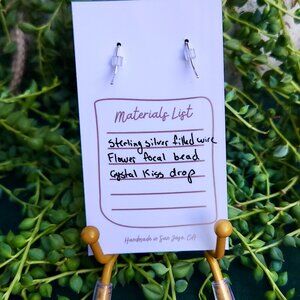 Materials List
Sterling silver filled wire
Flower focal bead
Crystal Kiss drop
Handmade in San Jose, CA